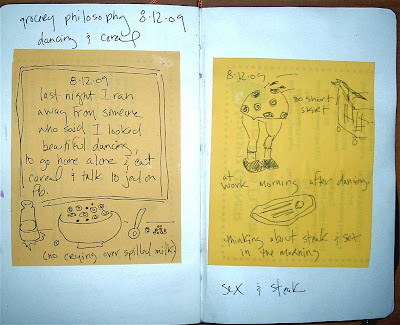 grocery philosophy 8·12·09
dancing & cereal
8·12·09
last night I ran
away from someone
who said I looked
beautiful dancing,
to go home alone & eat
cereal & talk to jed on
fb.
(no crying over spilled milk)
8·12·09
too short
skirt
at
work morning after dancing.
thinking about steak & sex
in the morning
sex & steak